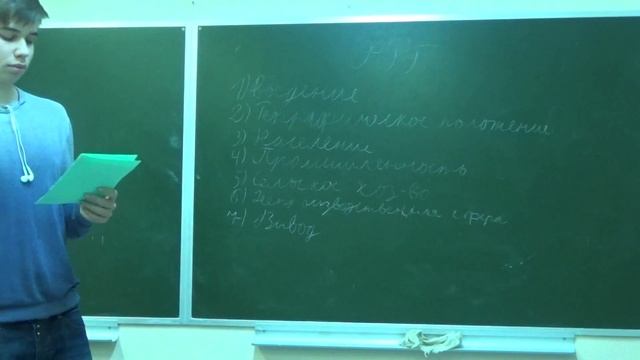 1) Введение
2) Географическое положение
3) Население
4) Промышленность
5) сельское хоз-во
6) сфера
7) Вывод